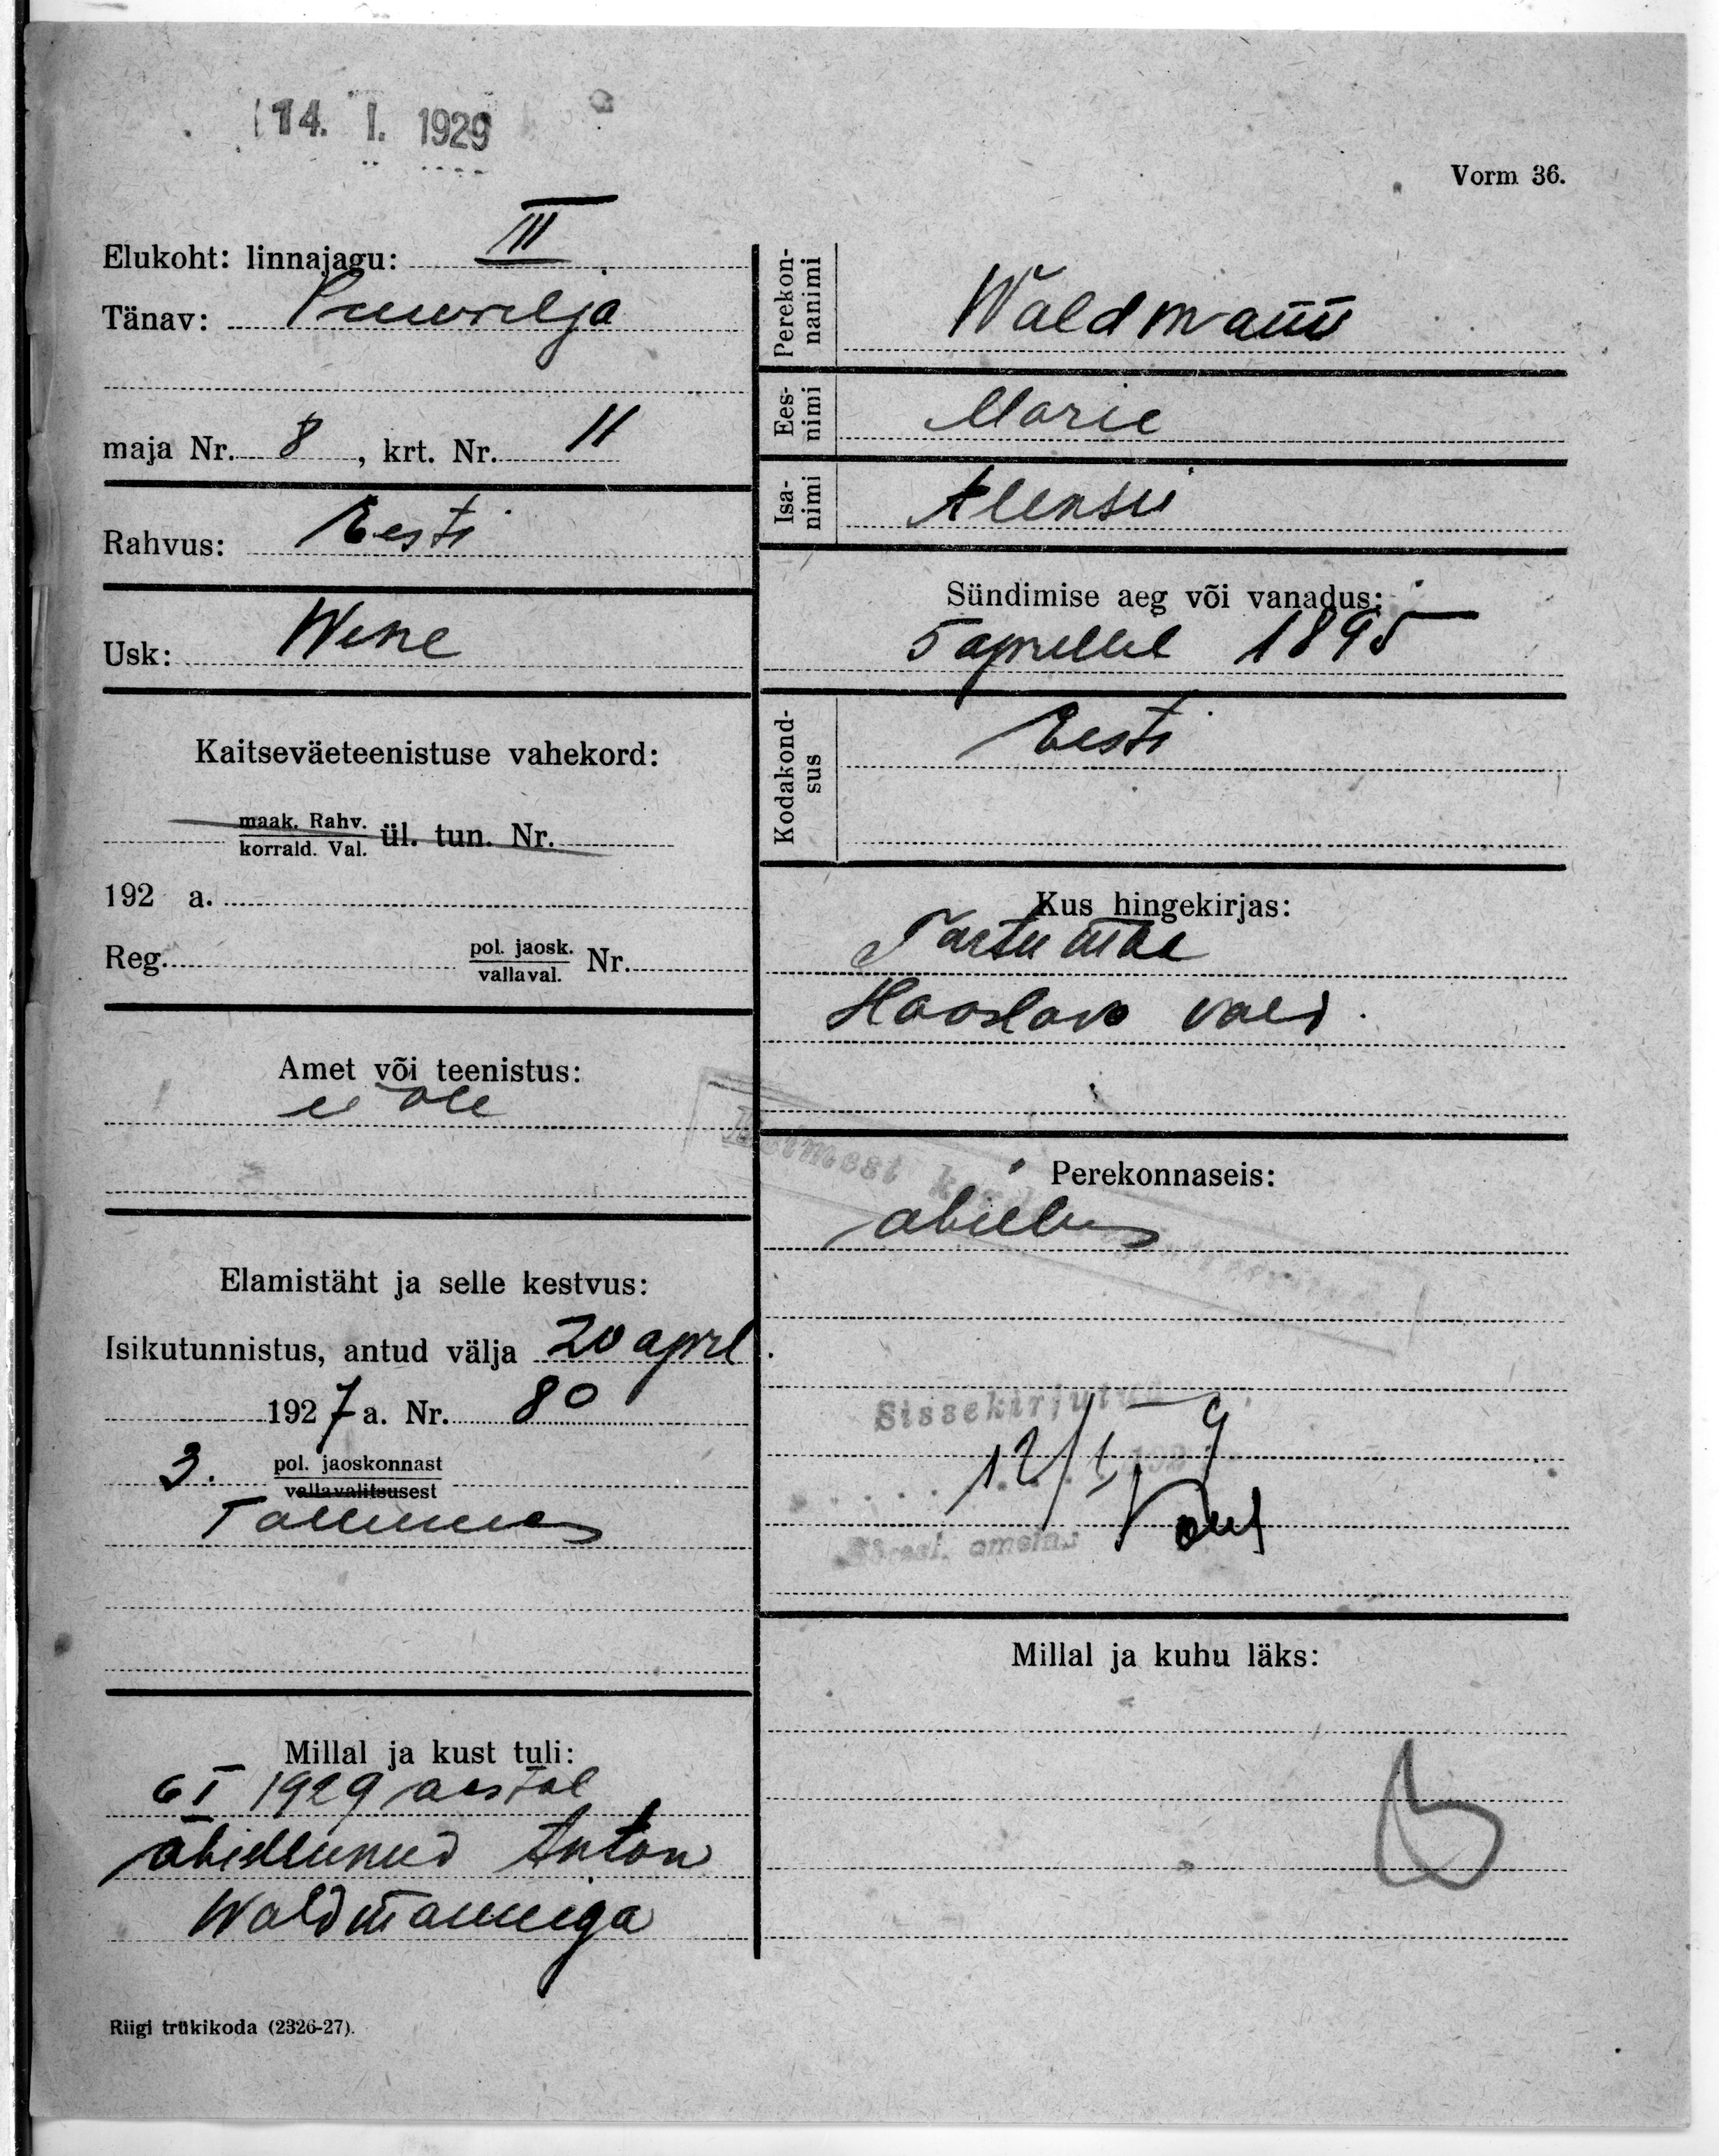 14. I. 1929
Vorm 36.
Elukoht: linnajagu: III
Tänav: Puuvilja
maja Nr. 8, krt. Nr. 11
Rahvus: Eesti
Usk: Wene
Kaitseväeteenistuse vahekord:
maak. Rahv.
korrald. Val. ül. tun. Nr.
192 a.
Reg. pol. jaosk.
vallaval. Nr.
Amet või teenistus:
ei ole
Elamistäht ja selle kestvus:
Isikutunnistus, antud välja 20 april
1927 a. Nr. 80
3. pol. jaoskonnast
vallavalitsusest
Tallinnas
Millal ja kust tuli:
6 I 1929 aastal
abiellunud Anton
Waldmanniga
Riigi trükikoda (2326-27).
Perekon-
nanimi Waldmann
Ees-
nimi Marie
Isa-
nimi Aleksei
Sündimise aeg või vanadus:
5 aprillil 1895
Kodakond-
sus Eesti
Kus hingekirjas:
Tartu
Haaslava vald.
Perekonnaseis:
abielus
Sissekirjutud
12/I 1929
ametnik
Millal ja kuhu läks: